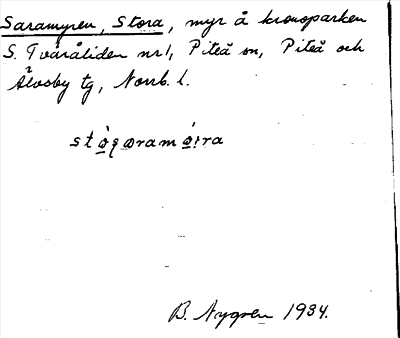 Saramyren, Stora, myr å kronoparken
S. Tvåråliden nr 1, Piteå sn, Piteå och
Älvsby tg, Norrb. l.
B. Nygren 1934.